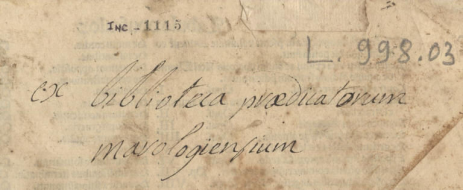 INC-1115
L. 998.03
ex biblioteca prædicatorum
marologiensium